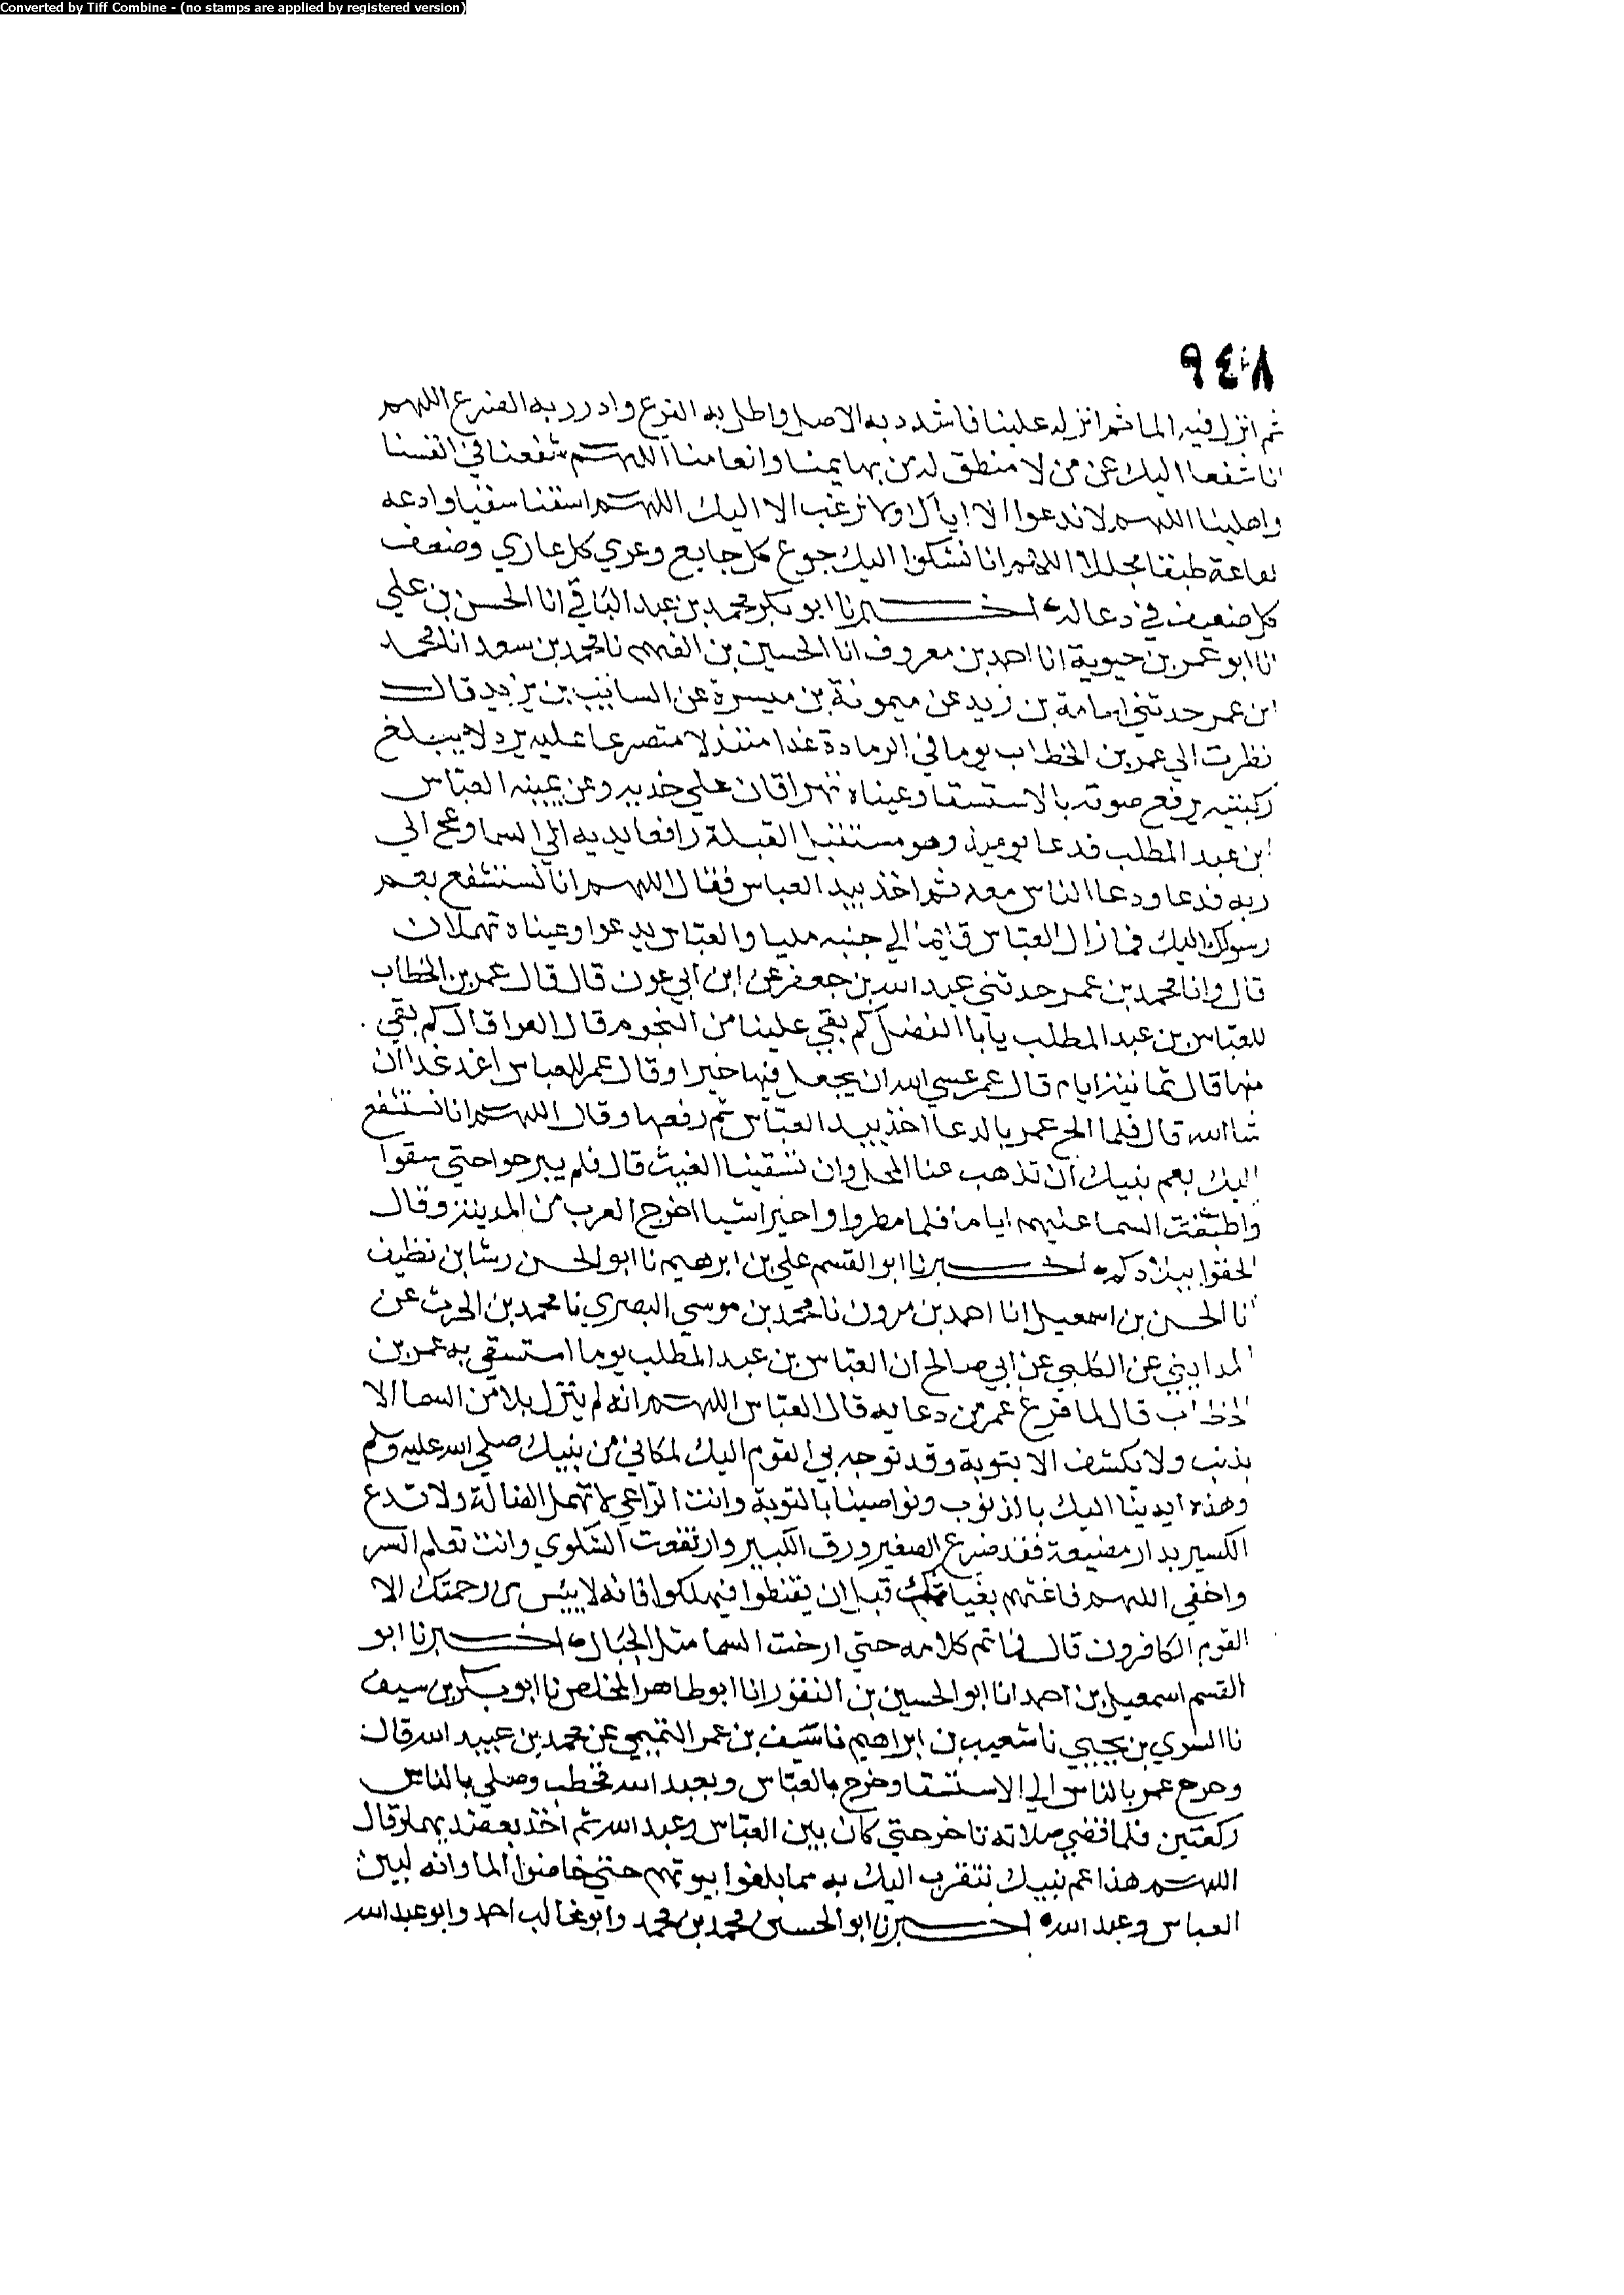 Converted by Tiff Combine - (no stamps are applied by registered version)
٩٤٨
ثم انزل فيه الما ثم انزله علينا فاشدد به الاصل واطل به الفرع وادرر به الضرع اللهم
انا شفعا اليك عن من لا منطق له من بهايمنا وانعامنا اللهم شفعنا في انفسنا
واهلينا اللهم لا ندعوا الا اياك ولا نرغب الا اليك اللهم اسقنا سقيا وادعه
نافعة طبقا مجللا اللهم انا نشكوا اليك جوع كل جايع وعري كل عاري وضعف
كل ضعيف في دعا له اخبرنا ابو بكر محمد بن عبد الباقي انا الحسن بن علي
انا ابو عمر بن حيوية انا احمد بن معروف انا الحسين بن الفهم نا محمد بن سعد انا محمد
ابن عمر حدثني اسامة بن زيد عن ميمونة بن ميسرة عن السايب بن يزيد قال
نظرت الي عمر بن الخطاب يوما في الرمادة غدا متبذلا متضرعا عليه برد لا يبلغ
ركبتيه يرفع صوته بالاستسقا وعيناه تهراقان علي خديه وعن يمينه العباس
ابن عبد المطلب فدعا يوميذ وهو مستقبل القبلة رافعا يديه الي السما وعج الي
ربه فدعا ودعا الناس معه ثم اخذ بيد العباس فقال اللهم انا نستشفع بعم
رسولك اليك فما زال العباس قايما الي جنبه مليا والعباس يدعوا وعيناه تهملان
قال وانا محمد بن عمر حدثني عبد الله بن جعفر عن ابن ابي عون قال قال عمر بن الخطاب
للعباس بن عبد المطلب يابا الفضل كم بقي علينا من النجوم قال العوا قال كم بقي
منها قال ثمانية ايام قال عمر عسي الله ان يجعل فيها خيرا وقال عمر للعباس اغد غدا ان
شا الله قال فلما الح عمر بالدعا اخذ بيد العباس ثم رفعها وقال اللهم انا نستشفع
اليك بعم نبيك ان تذهب عنا المحل وان تسقينا الغيث قال فلم يبرحوا حتي سقوا
واطبقت السما عليهم اياما فلما مطروا واحيوا شيا اخرج العرب من المدينة وقال
الحقوا ببلادكم اخبرنا ابو القسم علي بن ابرهيم نا ابو الحسن رشا بن نظيف
انا الحسن بن اسمعيل انا احمد بن مرون نا محمد بن موسي البصري نا محمد بن الحرث عن
المدايني عن الكلبي عن ابي صالح ان العباس بن عبد المطلب يوما استسقي به عمر بن
الخطاب قال لما فرغ عمر من دعايه قال العباس اللهم انه لم ينزل بلا من السما الا
بذنب ولا يكشف الا بتوبة وقد توجه بي القوم اليك لمكاني من نبيك صلي الله عليه وسلم
وهذه ايدينا اليك بالذنوب ونواصينا بالتوبة وانت الراعي لا تهمل الضالة ولا تدع
الكسير بدار مضيعة فقد ضرع الصغير ورق الكبير وارتفعت الشكوي وانت تعلم السر
واخفي اللهم فاغثهم بغياثك قبل ان يقنطوا فيهلكوا فانه لا ييس من رحمتك الا
القوم الكافرون قال فما تم كلامه حتي ارخت السما مثل الجبال اخبرنا ابو
القسم اسمعيل بن احمد انا ابو الحسين بن النقور انا ابو طاهر المخلص نا ابو بكر بن سيف
نا السري بن يحيي نا شعيب بن ابراهيم نا سيف بن عمر التميمي عن محمد بن عبيد الله قال
وخرج عمر بالناس الي الاستسقا وخرج بالعباس وبعبد الله فخطب وصلي بالناس
ركعتين فلما قضي صلاته تاخر حتي كان بين العباس وعبد الله ثم اخذ بعضديهما وقال
اللهم هذا عم نبيك نتقرب اليك به مما بلغوا بيوتهم حتي خاضوا الما وانه لبين
العباس وعبد الله اخبرنا ابو الحسين محمد بن محمد وابو غالب احمد وابو عبد الله